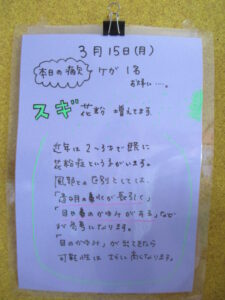 3月15日(月)
本日の病欠 ケガ 1名
お大事に…。
スギ花粉 増えてます
近年は2〜3才で既に
花粉症という子がいます。
風邪との区別としては、
「透明の鼻水が長引く」
「目や鼻のかゆみがする」などが
参考になります。
「目のかゆみ」が出てきたら
可能性はさらに高くなります。